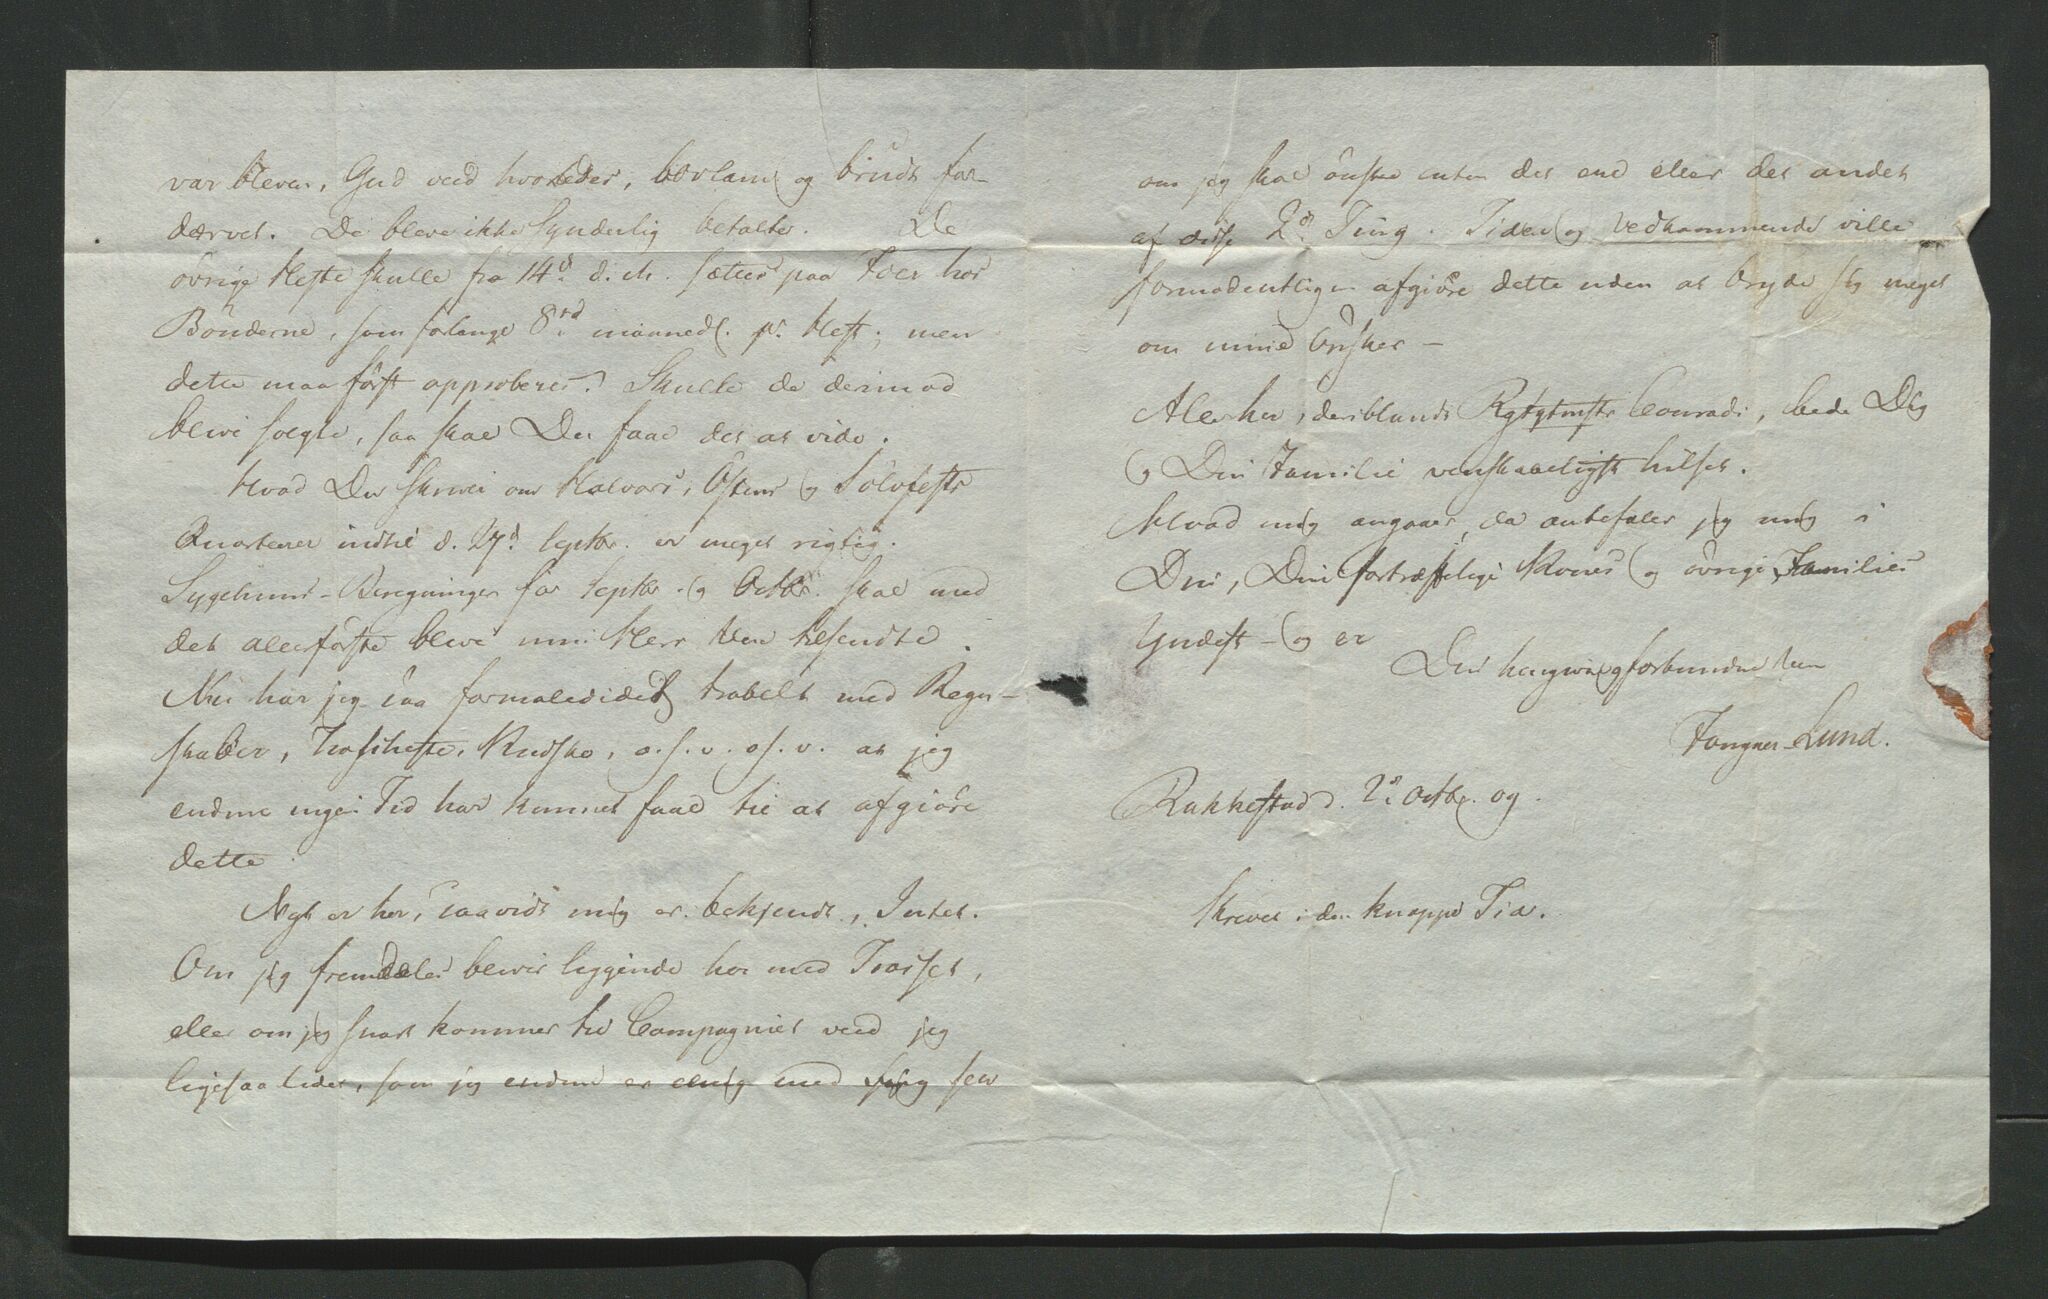 var bleven, Gud veed hvorledes, bovlam og brudt for-
dærvet. De bleve ikke synderlig betalte. De
övrige Heste skulle fra 14d d. M. sættes paa Foer hos
Bönderne, som forlange 8rd maanedl. pr. Hest; men
dette maa först approberes. Skulle de derimod
blive solgte, saa skal Du faae det at vide.
Hvad Du skriver om Halvors, Östens og Sölvfests
Qvarterer indtil d. 27d Septbr. er meget rigtig.
Sygehuus-Beregninger for Septbr. og Octbr. skal med
det allerförste blive min Herr Ven tilsendte.
Nu har jeg saa formaledidet travelt med Regn-
skaber, Trosheste, Kudske, o.s.v. o.s.v. at jeg
endnu ingen Tid har kunnet faae til at afgiöre
dette
Nyt er her, saavidt mig er bekjendt, Intet.
Om jeg fremdeles bliver liggende her med Trosset,
eller om jeg snart kommer til Compagniet veed jeg
ligesaa lidet, som jeg endnu er enig med mig selv
om jeg skal önske enten det ene eller det andet
af disse 2de Ting. Tiden og Vedkommende ville
formodentligen afgiöre dette uden at bryde sig meget
om mine Önsker –
Alle her, deriblandt Rgtqtmstr Conradi, bede Dig
og Din Familie venskabeligst hilset.
Hvad mig angaaer, da anbefaler jeg mig i
Din, Din fortræffelige Kones og övrige Families
Yndest – og er
Din hengivne og forbundne Ven
Fangner-Lund.
Rakkestad d. 2d Octbr. 09.
Skrevet i den knappe Tid.